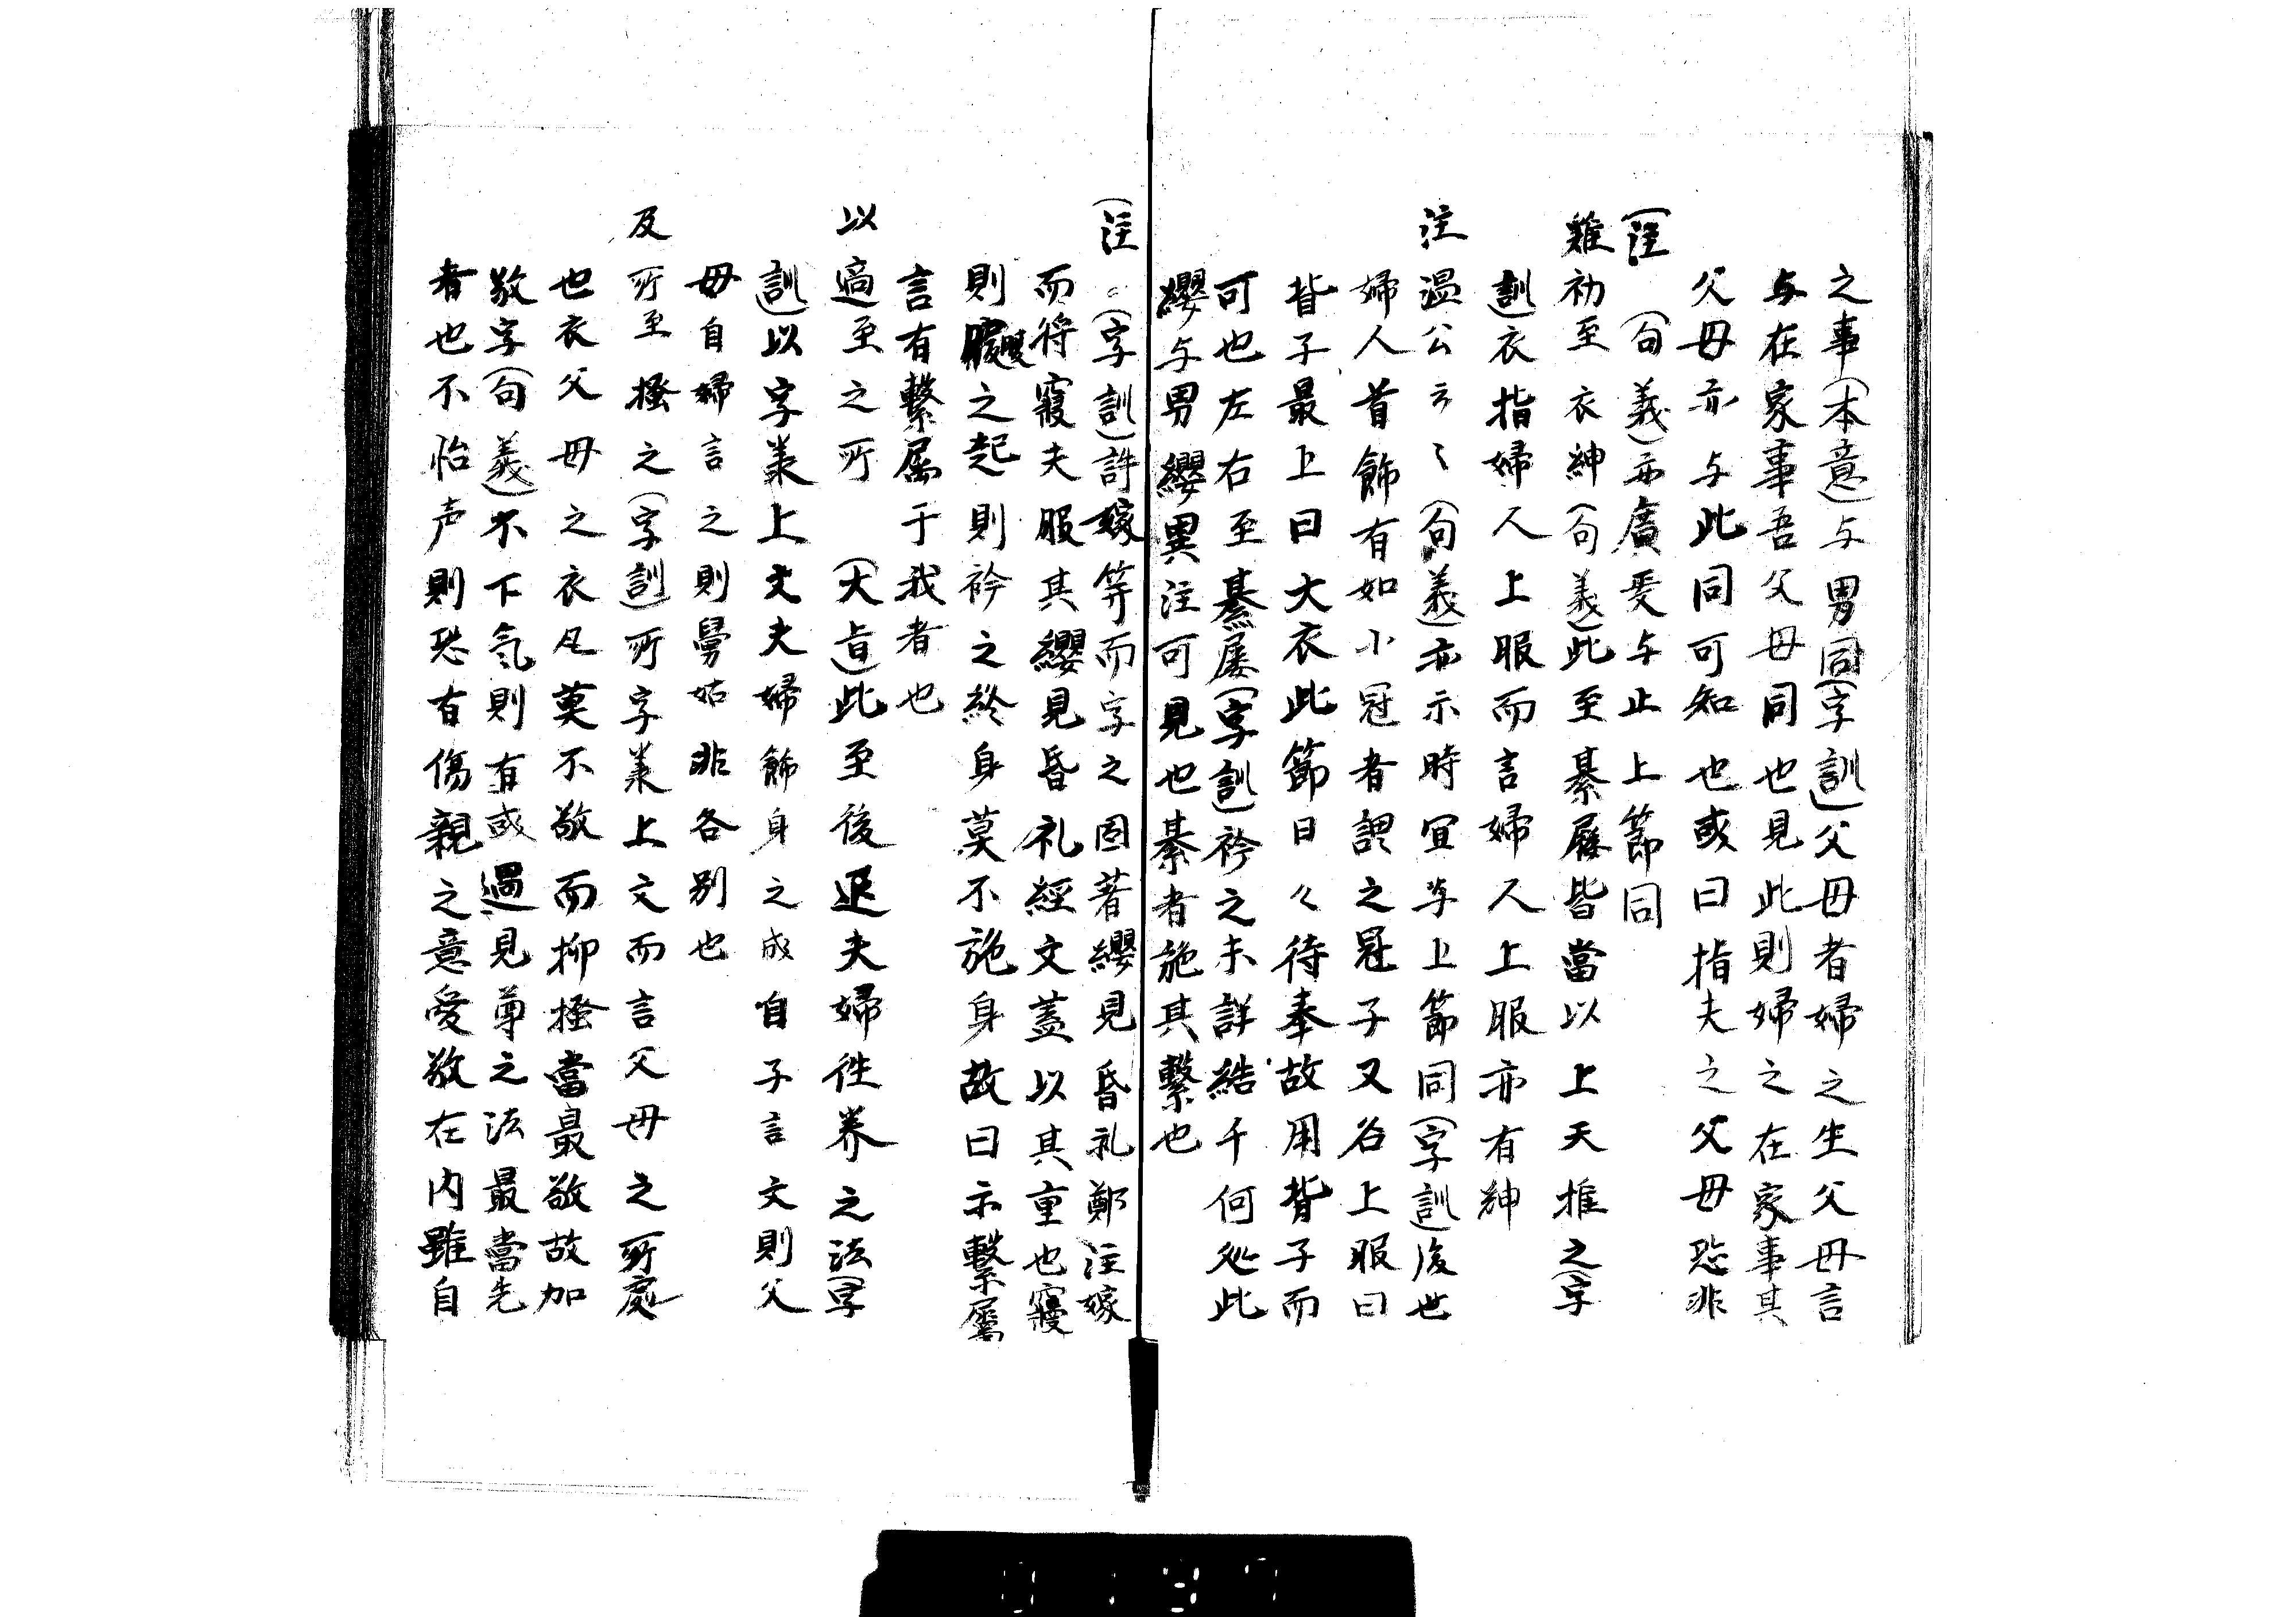 之事(本意)与男同(字訓)父母者婦之生父母言
与在家事吾父母同也見此則婦之在家事其
父母亦与此同可知也或曰指夫之父母恐非
(注　(句義)亦廣受与止上節同
雞初至衣紳(句義)此至綦屨皆當以上天推之(字
訓)衣指婦人上服而言婦人上服亦有紳
注温公云〻(句義)亦示時宜与上節同(字訓)後世
婦人首飾有如小冠者謂之冠子又名上服曰
背子最上曰大衣此節日々待奉故用背子而
可也左右至綦屨(字訓)衿之未詳結千何処此
纓与男纓異注可見也綦者施其繫也
(注〻(字訓)許嫁笄而字之因著纓見昏礼鄭注嫁
而将寝夫脱其纓見昏礼經文蓋以其重也寝
則脱之起則衿之終身莫不施身故曰示繫属
言有繫属于我者也
以適至之所　(大旨)此至後退夫婦徃养之法(字
訓)以字羕上文夫婦飾身之成自子言文則父
母自婦言之則舅姑非各别也
及所至搔之(字訓)所字羕上文而言父母之所處
也衣父母之衣凡莫不敬而抑搔當最敬故加
敬字(句義)不下気則有或過見尊之法最當先
者也不怡声則恐有傷親之意愛敬在内雖自